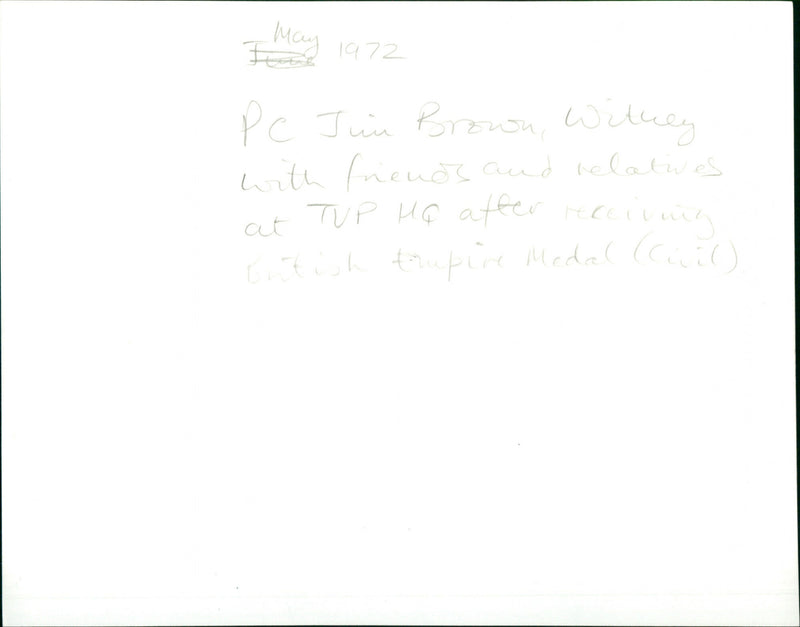 May
June 1972
PC Jim Brown, Witney
with friends and relatives
at TVP HQ after receiving
British Empire Medal (Civil)